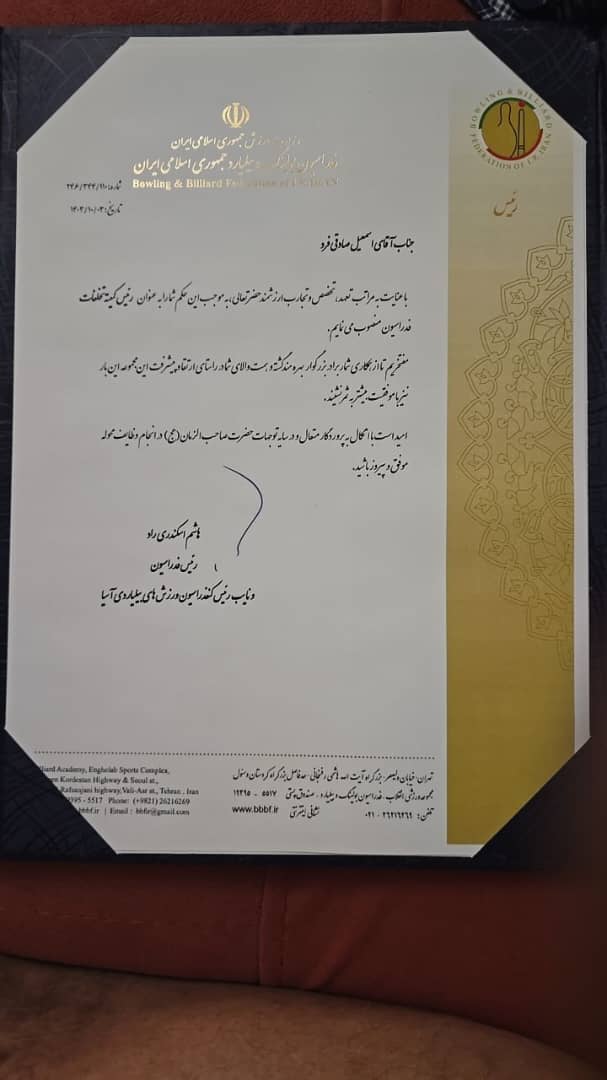 وزارت ورزش جمهوری اسلامی ایران
فدراسیون بولینگ و بیلیارد جمهوری اسلامی ایران
Bowling & Billiard Federation of I.R.IRAN
BOWLING & BILLIARD FEDERATION OF I.R. IRAN
رئیس
شماره: ۲۴۶/۳۴۴/۹۱۰
تاریخ: ۱۴۰۳/۱۰/۰۳
جناب آقای اسمعیل صادقی فرد
با عنایت به مراتب تعهد، تخصص و تجارب ارزشمند حضرتعالی، به موجب این حکم شما را به عنوان رئیس کمیته تخلفات
فدراسیون منصوب می نمایم.
مفتخریم تا از همکاری شما برادر بزرگوار بهره مند گشته و همت والای شما در راستای ارتقاء و پیشرفت این مجموعه این بار
نیز با موفقیت بیشتر به ثمر نشیند.
امید است با اتکال به پروردگار متعال و در سایه توجهات حضرت صاحب الزمان (عج) در انجام وظایف محوله
موفق و پیروز باشید.
هاشم اسکندری راد
رئیس فدراسیون
و نایب رئیس کنفدراسیون ورزش های بیلیاردی آسیا
تهران، خیابان ولیعصر، بزرگراه آیت الله هاشمی رفسنجانی، حدفاصل بزرگراه کردستان و سئول
مجموعه ورزشی انقلاب، فدراسیون بولینگ و بیلیارد، صندوق پستی ۵۵۱۷ - ۱۹۳۹۵
تلفن: ۲۶۲۱۶۲۶۹ - ۰۲۱ نشانی اینترنتی www.bbbf.ir
Billiard Academy, Enghelab Sports Complex,
Kordestan Highway & Seoul st.,
Rafsanjani highway, Vali-Asr st., Tehran, Iran
5517 Phone: (+9821) 26216269
bbbf.ir | Email : bbfir@gmail.com